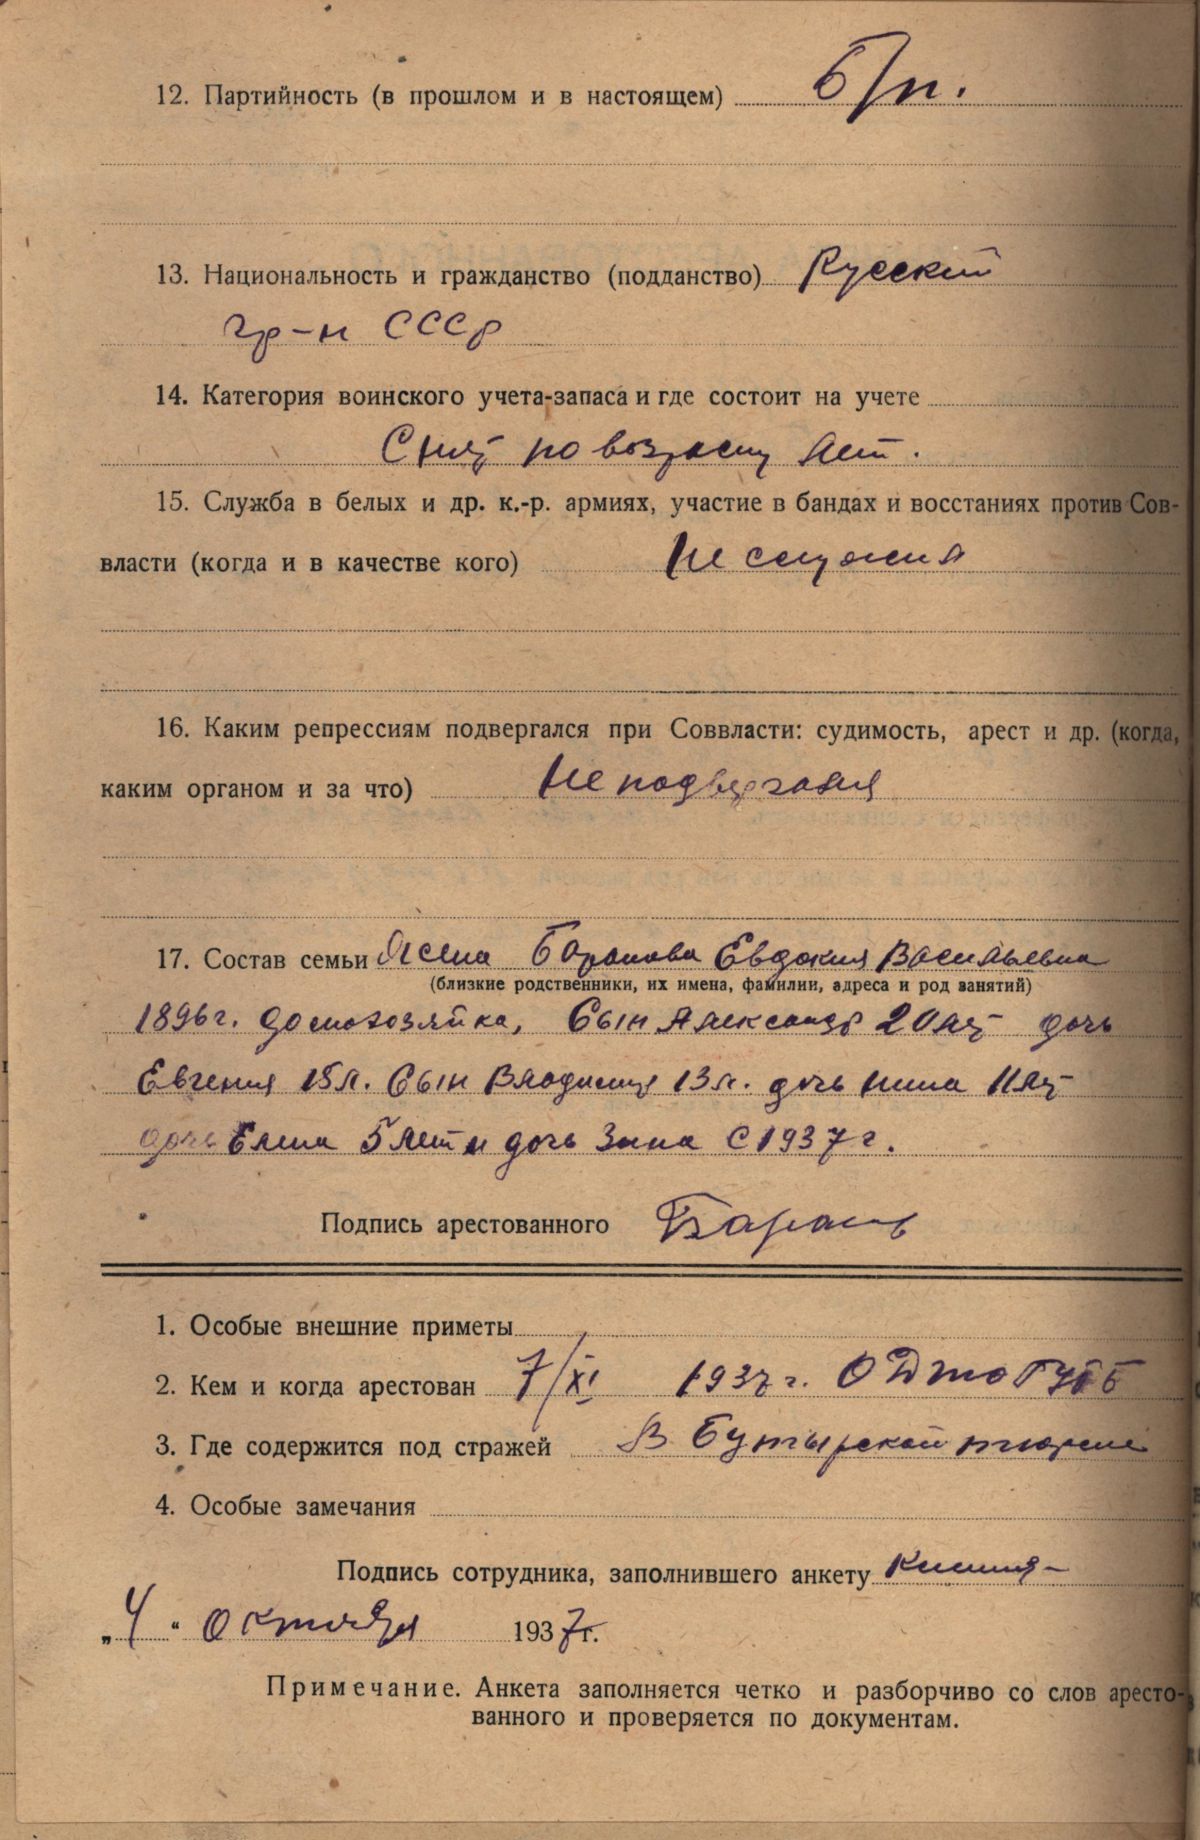 12. Партийность (в прошлом и в настоящем) б/п.
13. Национальность и гражданство (подданство) Русский
гр-н СССР
14. Категория воинского учета-запаса и где состоит на учете
Снят по возрасту лет.
15. Служба в белых и др. к.-р. армиях, участие в бандах и восстаниях против Сов-
власти (когда и в качестве кого) Не служил
16. Каким репрессиям подвергался при Соввласти: судимость, арест и др. (когда,
каким органом и за что) Не подвергался
17. Состав семьи Жена Баранова Евдокия Васильевна
(близкие родственники, их имена, фамилии, адреса и род занятий)
1896 г. домохозяйка, Сын Александр 20 лет дочь
Евгения 15 л. Сын Владимир 13 л. дочь Нина 11 лет
дочь Елена 5 лет и дочь Зина с 1937 г.
Подпись арестованного Баранов
1. Особые внешние приметы
2. Кем и когда арестован 7/XI 1937 г.
3. Где содержится под стражей в Бутырской тюрьме
4. Особые замечания
Подпись сотрудника, заполнившего анкету
„4“ октября 1937 г.
Примечание. Анкета заполняется четко и разборчиво со слов аресто-
ванного и проверяется по документам.